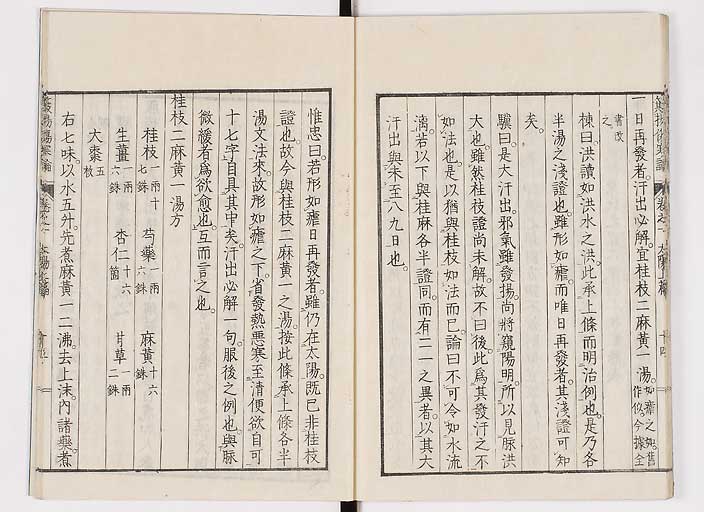 一日再發者汗出必解宜桂枝二麻黃一湯如瘧之如舊作似今據全
書改之
棟曰洪讀如洪水之洪此承上條而明治例也是乃各
半湯之淺證也雖形如瘧而唯日再發者其淺證可知
矣
驥曰是大汗出邪氣雖發揚尚將窺陽明所以見脉洪
大也雖然桂枝證尚未解故不曰後此爲其發汗之不
如法也是以猶與桂枝如法而已論曰不可令如水流
漓若以下與桂麻各半證同而有二一之異者以其大
汗出與未至八九日也
惟忠曰若形如瘧日再發者雖仍在太陽既已非桂枝
證也故今與桂枝二麻黃一之湯按此條承上條各半
湯文法來故形如瘧之下省發熱惡寒至清便欲自可
十七字自具其中矣汗出必解一句服後之例也與脈
微緩者爲欲愈也互而言之也
桂枝二麻黃一湯方
桂枝一兩十七銖 芍藥一兩六銖 麻黃十六銖
生薑一兩六銖 杏仁十六箇 甘草一兩二銖
大棗五枚
右七味以水五升先煮麻黃一二沸去上沫內諸藥煮